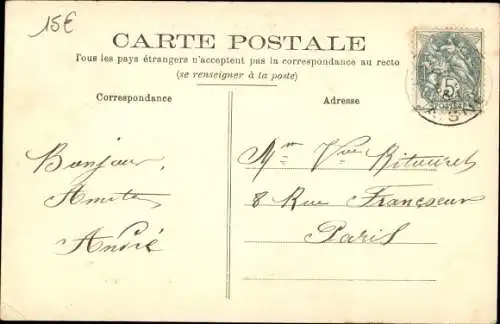 15€
CARTE POSTALE
Tous les pays étrangers n'acceptent pas la correspondance au recto
(se renseigner à la poste)
Correspondance
Adresse
5c
POSTES
Bonjour,
Amitiés
André
Mme Vve
8 Rue Francoeur
Paris